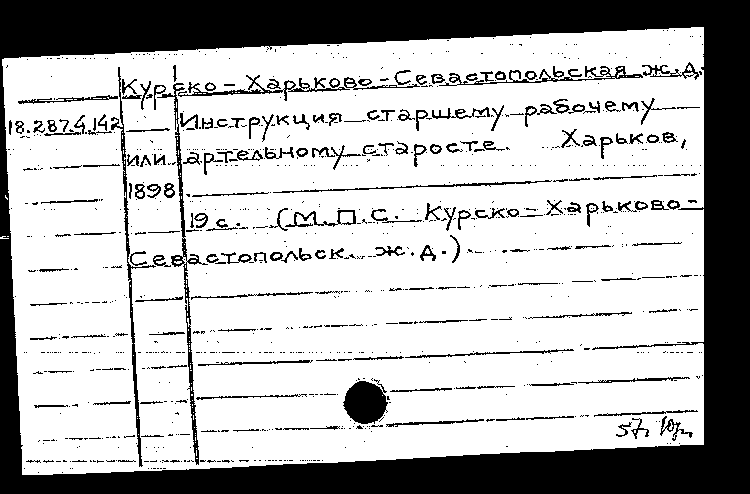 Курско-Харьково-Севастопольская ж.д.
18.287.4.142 Инструкция старшему рабочему
или артельному старосте. Харьков,
1898.
19 с. (М.П.С. Курско-Харьково-
Севастопольск. ж.д.).
57.